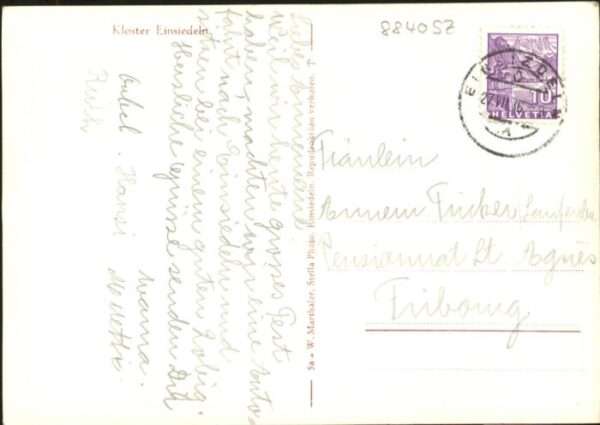 Kloster Einsiedeln
8840SZ
EINSIEDELN
27.VII.
10
HELVETIA
Liebes Annemarie!
Weil wir heute grosses Fest
haben, machten wir eine Auto
fahrt nach Einsiedeln und
sitzen bei einem guten Zobig.
Herzliche Grüsse senden Dir
Onkel. Hansi Mama.
Ruth
5a • W. Marthaler, Stella Photo, Einsiedeln. Reproduktion verboten.
Fräulein
Annem Fricker
Pensionnat St. Agnès
Fribourg